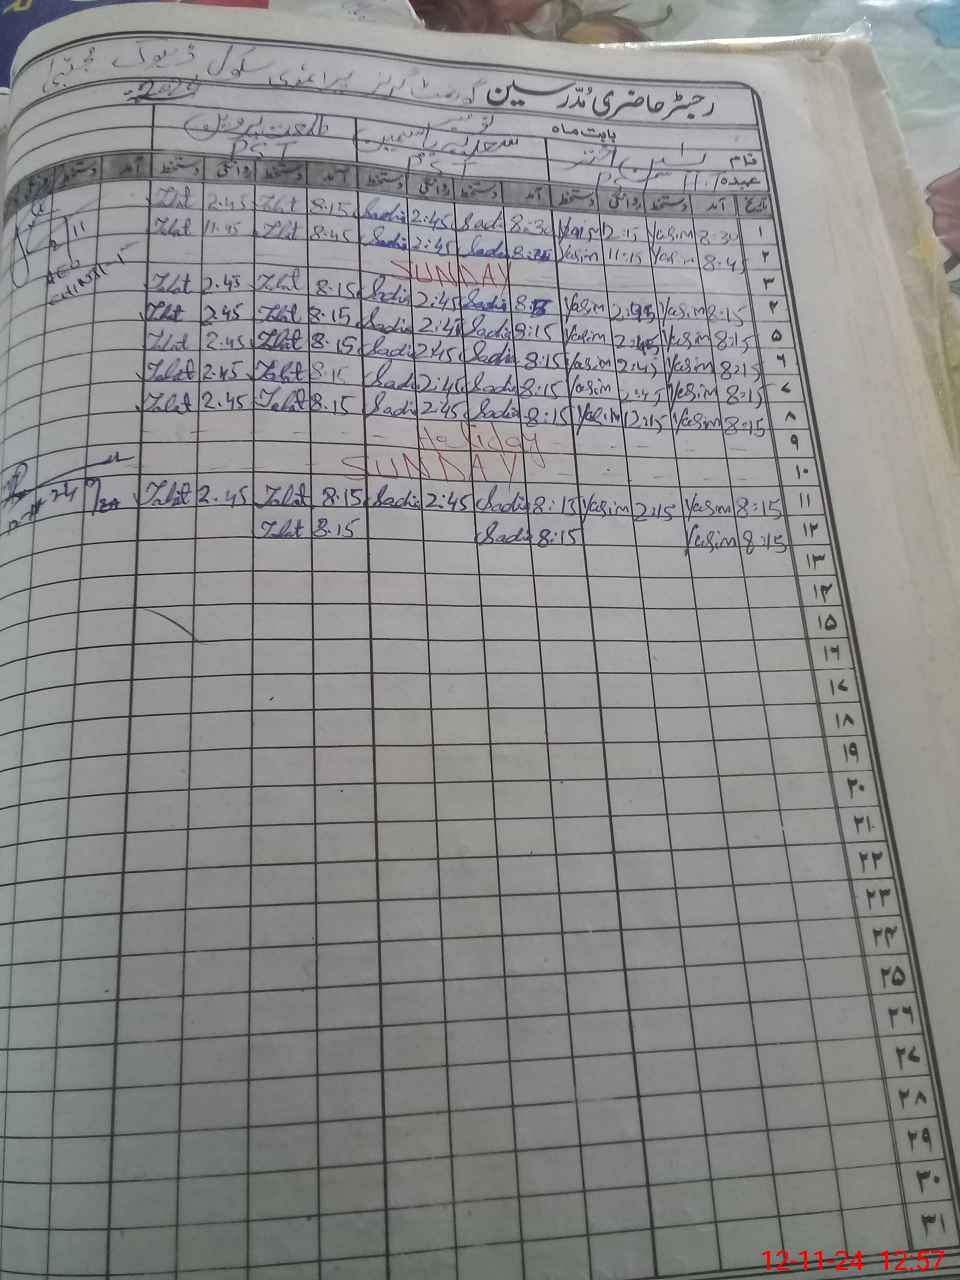 رجسٹر حاضری مُدرسین گورنمنٹ گرلز پرائمری سکول
بابت ماہ نومبر
نام یاسمین اختر سعدیہ یاسمین طلعت پروین
عہدہ PST PST
تاریخ آمد دستخط روانگی دستخط آمد دستخط روانگی دستخط آمد دستخط روانگی دستخط آمد دستخط روانگی
۱ 8:30 Yasim 12:15 Yasim 8:30 Sadi 2:45 Sadia 8:15 Talat 2.45 Talat
۲ 8:45 Yasim 11:15 Yasim Sadia 2:45 Sadia 8:45 Talat 11.45 Talat
۳ SUNDAY
۴ 8:15 Yasim Yasim Sadia 2:45 Sadia 8.15 Talat 2.45 Talat
۵ 8:15 Yasim 2:45 Yasim 8:15 Sadia 2:45 Sadia 8.15 Talat 2.45 Talat
۶ 8:15 Yasim 2:45 Yasim 8:15 Sadia 2:45 Sadia 8.15 Talat 2.45 Talat
۷ 8:15 Yasim Yasim 8:15 Sadia 2:45 Sadia 8.15 Talat 2.45 Talat
۸ 8:15 Yasim 12:15 Yasim 8:15 Sadia 2:45 Sadia 8.15 Talat 2.45 Talat
۹ Holiday
۱۰ SUNDAY
۱۱ 8:15 Yasim 2:15 Yasim 8:15 Sadia 2:45 Sadia 8.15 Talat 2.45 Talat
۱۲ 8:15 Yasim 8:15 Sadia 8.15 Talat
۱۳
۱۴
۱۵
۱۶
۱۷
۱۸
۱۹
۲۰
۲۱
۲۲
۲۳
۲۴
۲۵
۲۶
۲۷
۲۸
۲۹
۳۰
۳۱
12-11-24 12:57